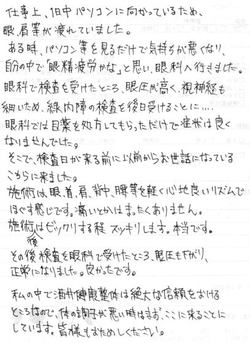 仕事上、1日中パソコンに向かっているため、
眼、肩等が疲れていました。
ある時、パソコン等を見るだけで気持ちが悪くなり、
自分の中で「眼精疲労かな」と思い、眼科へ行きました。
眼科で検査を受けたところ、眼圧が高く、視神経も
細いため、緑内障の検査を後日受けることに…。
眼科では目薬を処方してもらっただけで症状は良く
なりませんでした。
そこで、検査日が来る前に以前からお世話になっている
こちらに来ました。
施術は、眼、首、肩、背中、腰等を軽く心地良いリズムで
ほぐす感じです。痛いとかはまったくありません。
施術後はビックリする程スッキリします。本当です。
その後検査を眼科で受けたところ、眼圧も下がり、
正常になりました。良かったです。
私の中で酒井健康整体は絶大な信頼をおける
ところなので、体の調子が悪い時はまず、ここに来ることに
しています。皆様もおためしください。